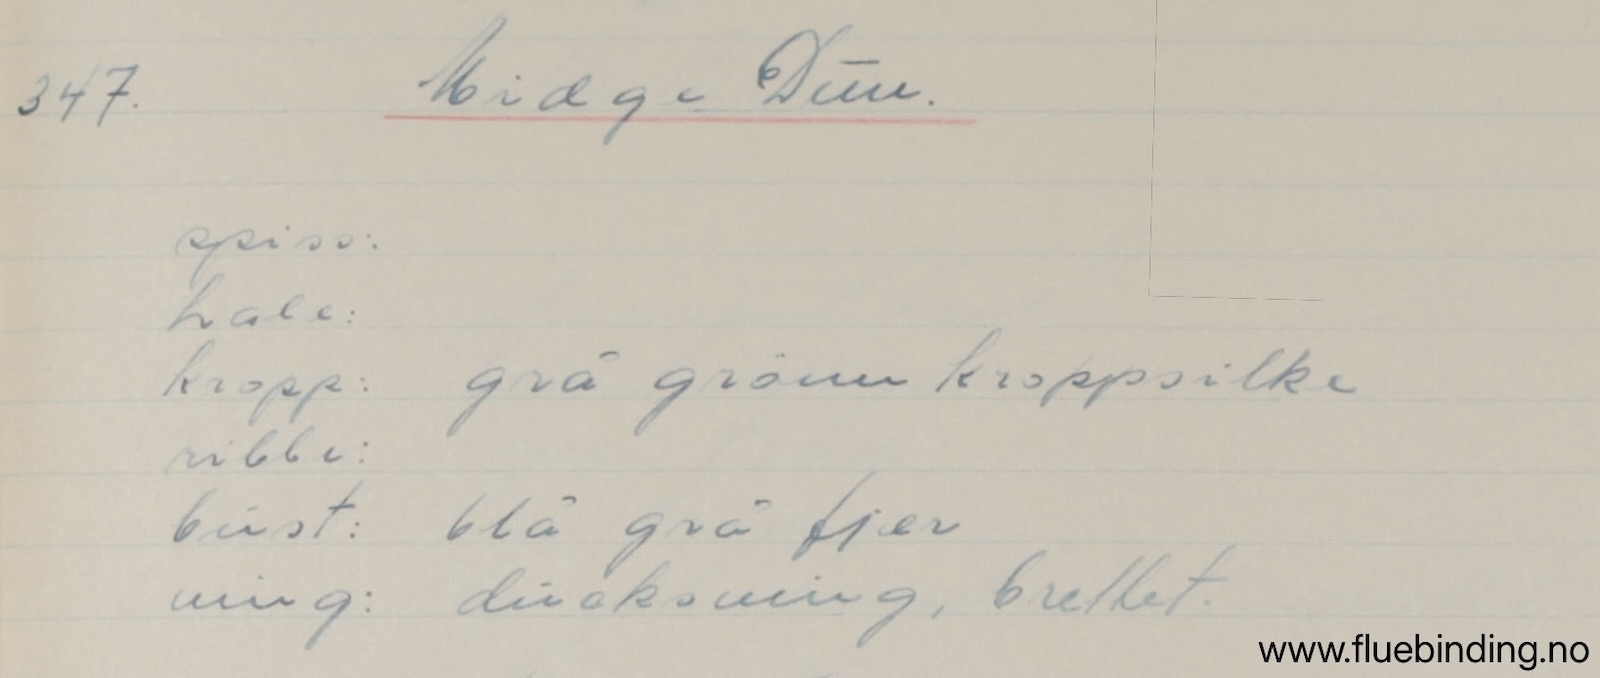 347. Midge Dun.
spiss:
hale:
kropp: grå grönn kroppsilke
ribbe:
bust: blå grå fjer
ving: duckswing, brettet.
www.fluebinding.no